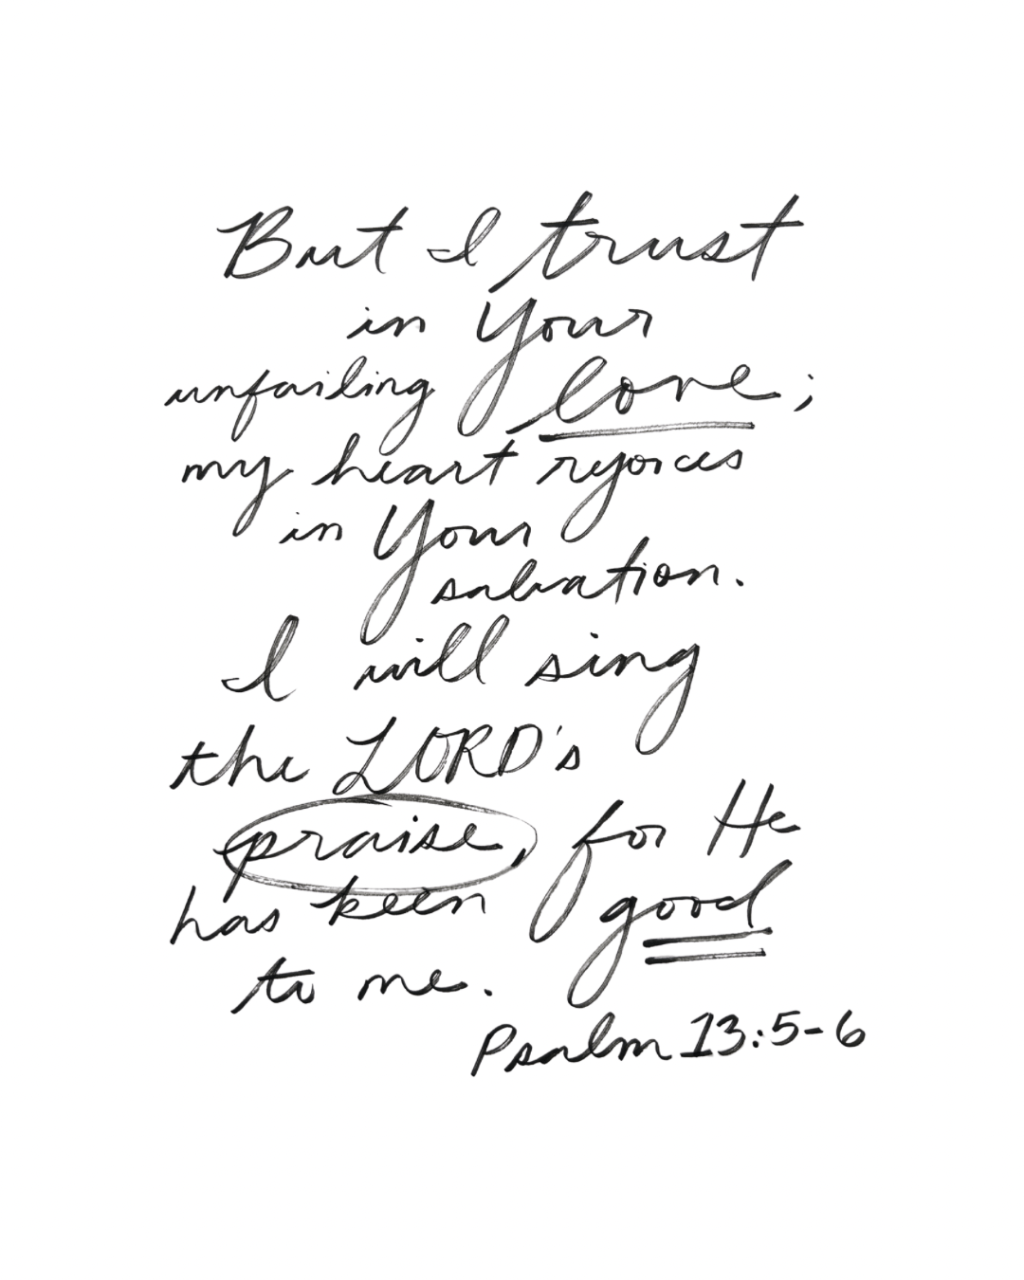 But I trust
in Your
unfailing love;
my heart rejoices
in Your
salvation.
I will sing
the LORD's
praise, for He
has been good
to me.
Psalm 13:5-6